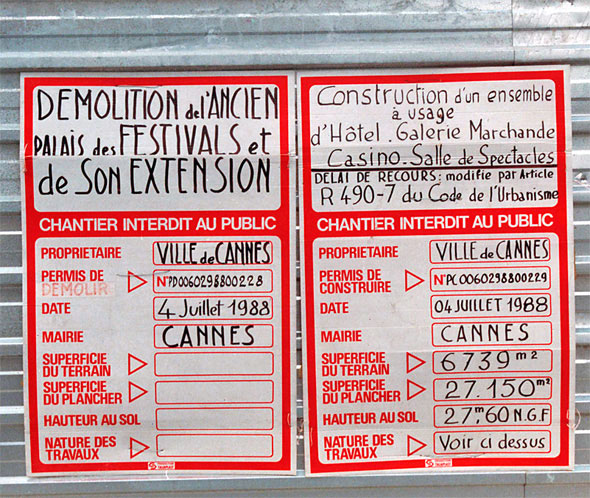 DEMOLITION de l'ANCIEN
PALAIS des FESTIVALS et
de Son EXTENSION
CHANTIER INTERDIT AU PUBLIC
PROPRIETAIRE VILLE de CANNES
PERMIS DE
DEMOLIR N°PD0060298800228
DATE 4 Juillet 1988
MAIRIE CANNES
SUPERFICIE
DU TERRAIN
SUPERFICIE
DU PLANCHER
HAUTEUR AU SOL
NATURE DES
TRAVAUX
Construction d'un ensemble
à usage
d'Hôtel. Galerie Marchande
Casino. Salle de Spectacles
DELAI DE RECOURS: modifie par Article
R 490-7 du Code de l'Urbanisme
CHANTIER INTERDIT AU PUBLIC
PROPRIETAIRE VILLE de CANNES
PERMIS DE
CONSTRUIRE N°PC0060298800229
DATE 04 JUILLET 1988
MAIRIE CANNES
SUPERFICIE
DU TERRAIN 6739 m²
SUPERFICIE
DU PLANCHER 27.150 m²
HAUTEUR AU SOL 27,m60 N.G.F
NATURE DES
TRAVAUX Voir ci dessus